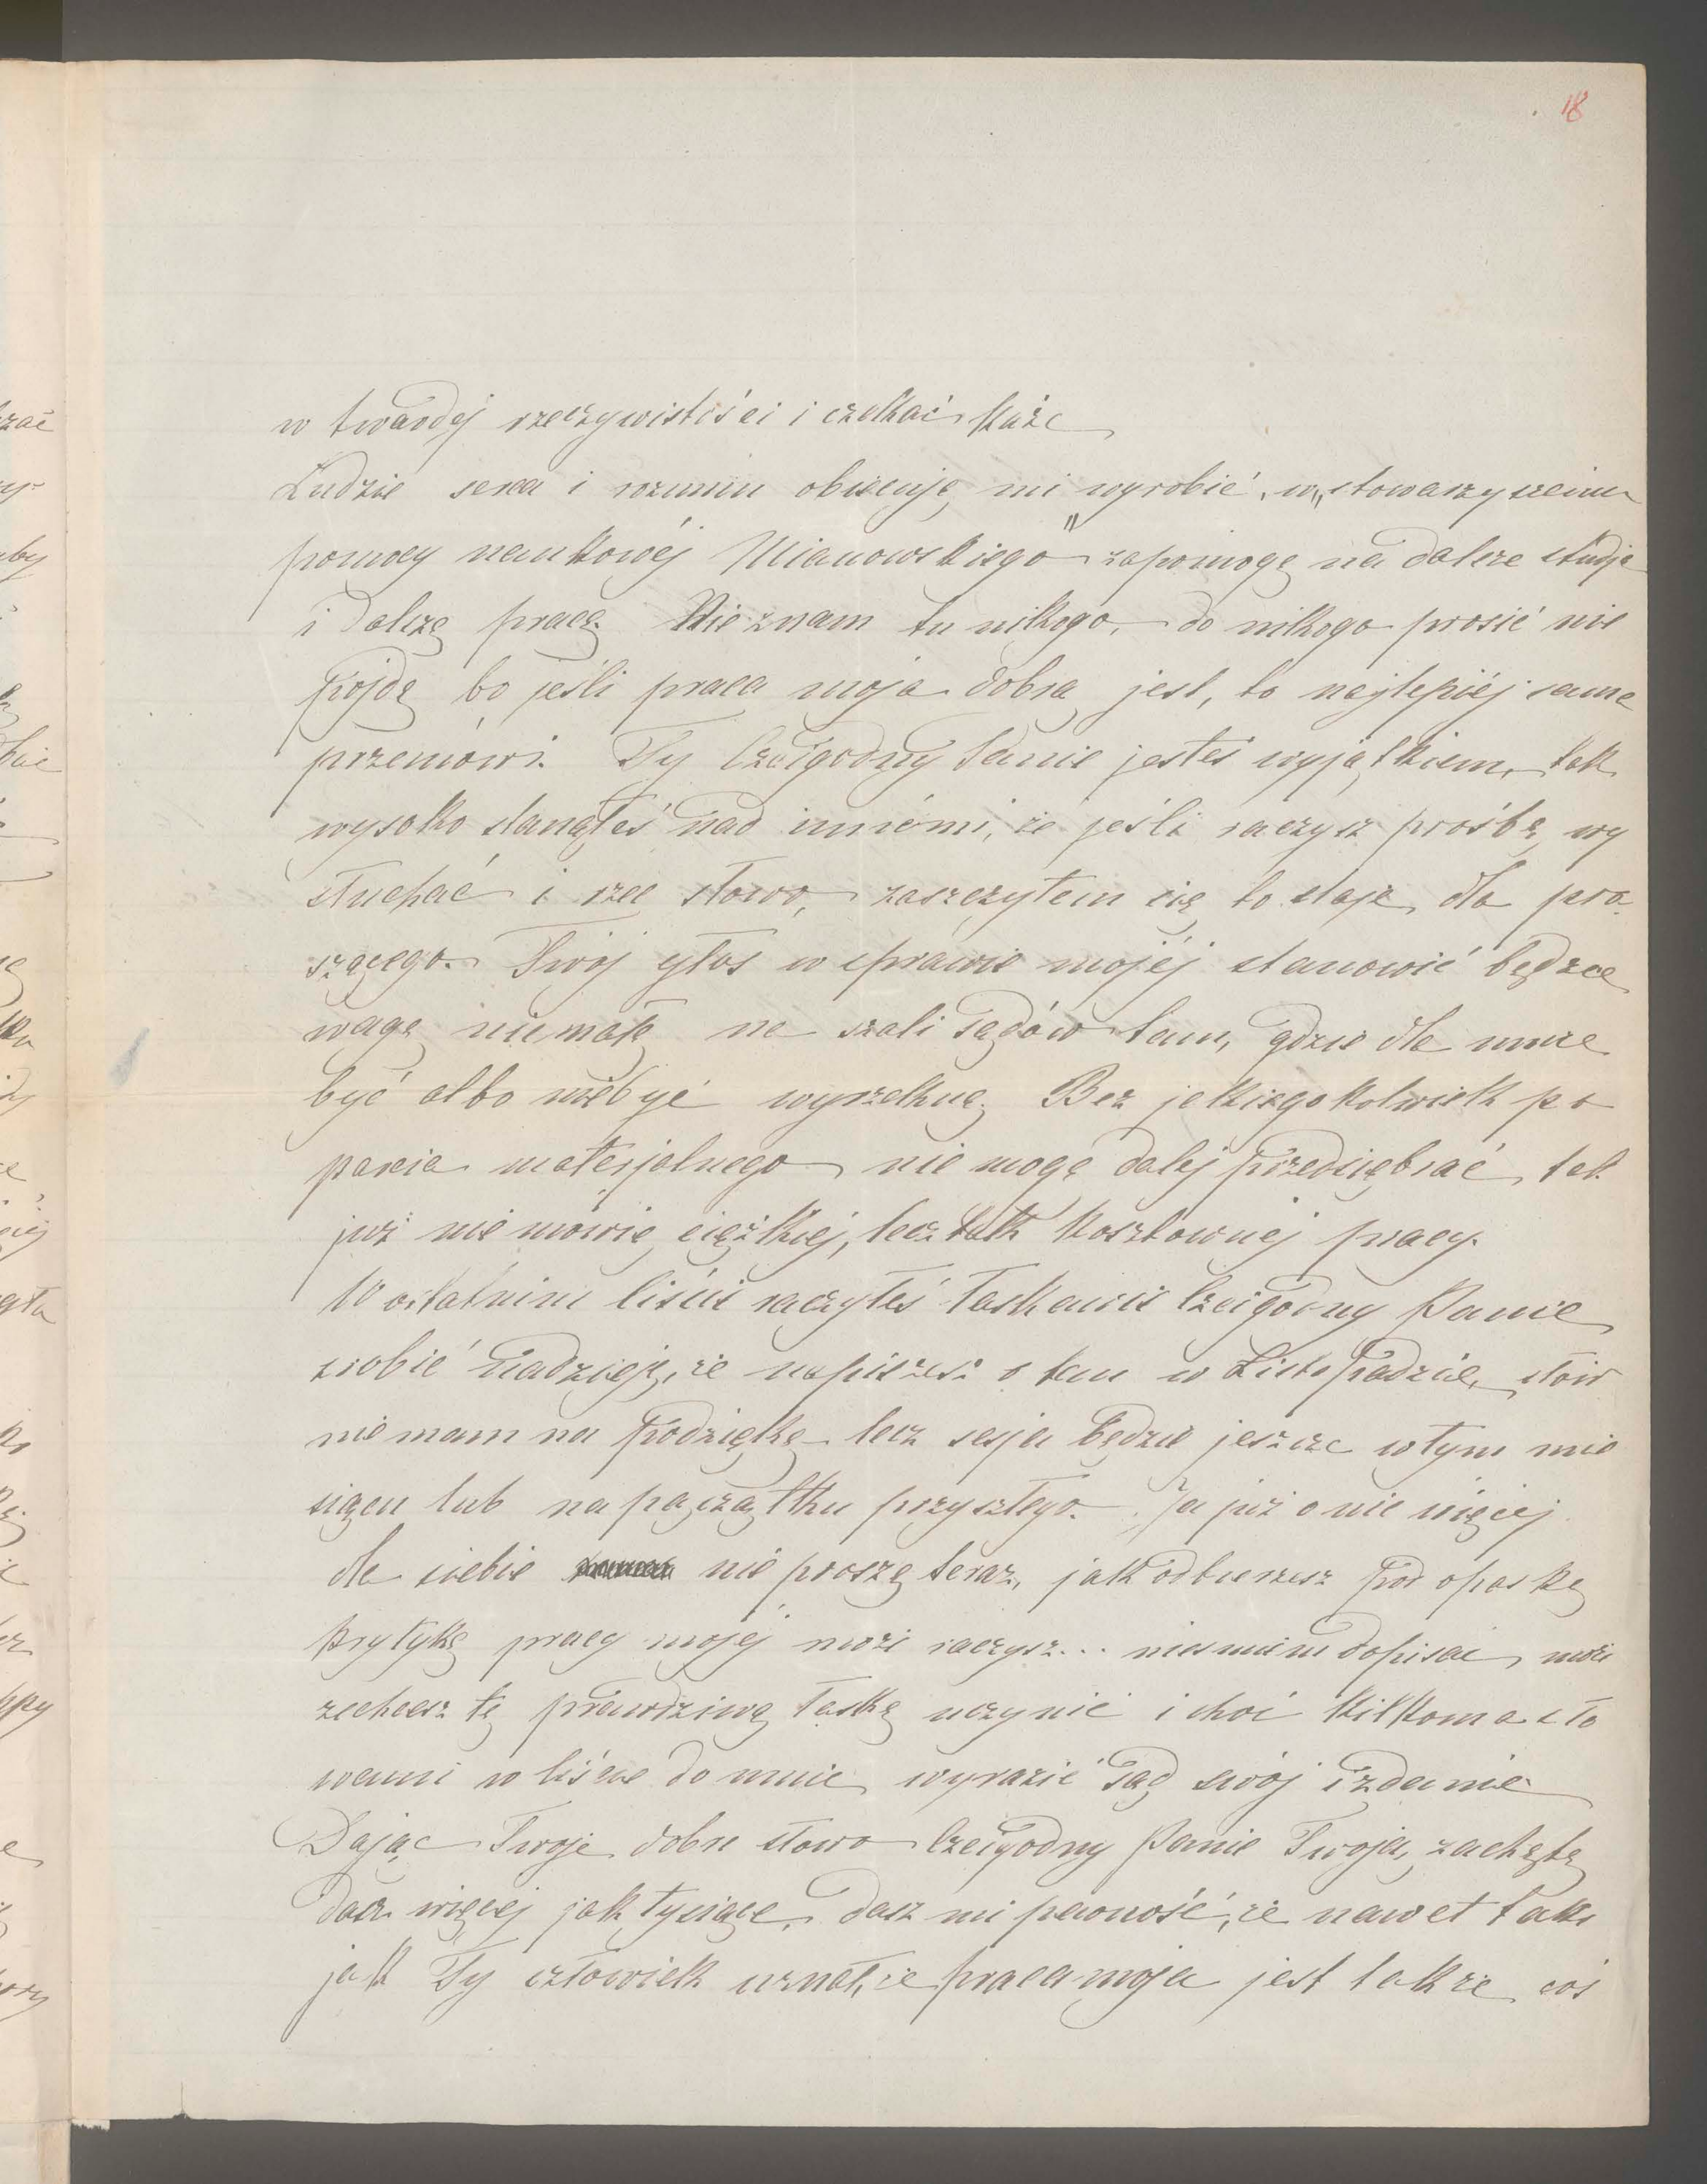 18
w twardéj rzeczywistości i czekać każe
Ludzie serca i rozumu obiecują mi wyrobić, w „stowarzyszeniu
pomocy naukowéj Mianowskiego" zapomogę na dalsze studja
i dalszą pracę. Nie znam tu nikogo, do nikogo prosić nie
pójdę bo jeśli praca moja dobra jest, to najlepiéj sama
przemówi. Ty Czcigodny Panie jesteś wyjątkiem, tak
wysoko stanąłeś nad innémi, że jeśli raczysz prośbę wy
słuchać i rzec słowo, zaszczytem się to staje dla pro
szącego. Twój głos w sprawie mojéj stanowić będzie
wagę niemałą na szali sądów tam, gdzie dla mnie
być albo niebyć wyrzekną. Bez jakiegokolwiek po
parcia materjalnego nie mogę dalej przedsiębrać tak
już nie mówię ciężkiej, lecz tak kosztownéj pracy.
W ostatnim liście raczyłeś łaskawie Czcigodny Panie
zrobić nadzieję, że napiszesz o tem w Listopadzie, słów
nie mam na podziękę lecz sesja będzie jeszcze w tym mie
siącu lub na początku przyszłego. Ja już o nic więcéj
dla siebie nie proszę teraz, jak odbierzesz pod opaską
krytykę pracy mojéj może raczysz... nieśmiem dopisać, może
zechcesz tę prawdziwą łaskę uczynić i choć kilkoma sło
wami w liście do mnie wyrazić sąd swój i zdanie
Dając Twoje dobre słowo Czcigodny Panie Twoją zachętę
dasz więcej jak tysiące, dasz mi pewność, że nawet taki
jak Ty człowiek uznał, że praca moja jest także coś